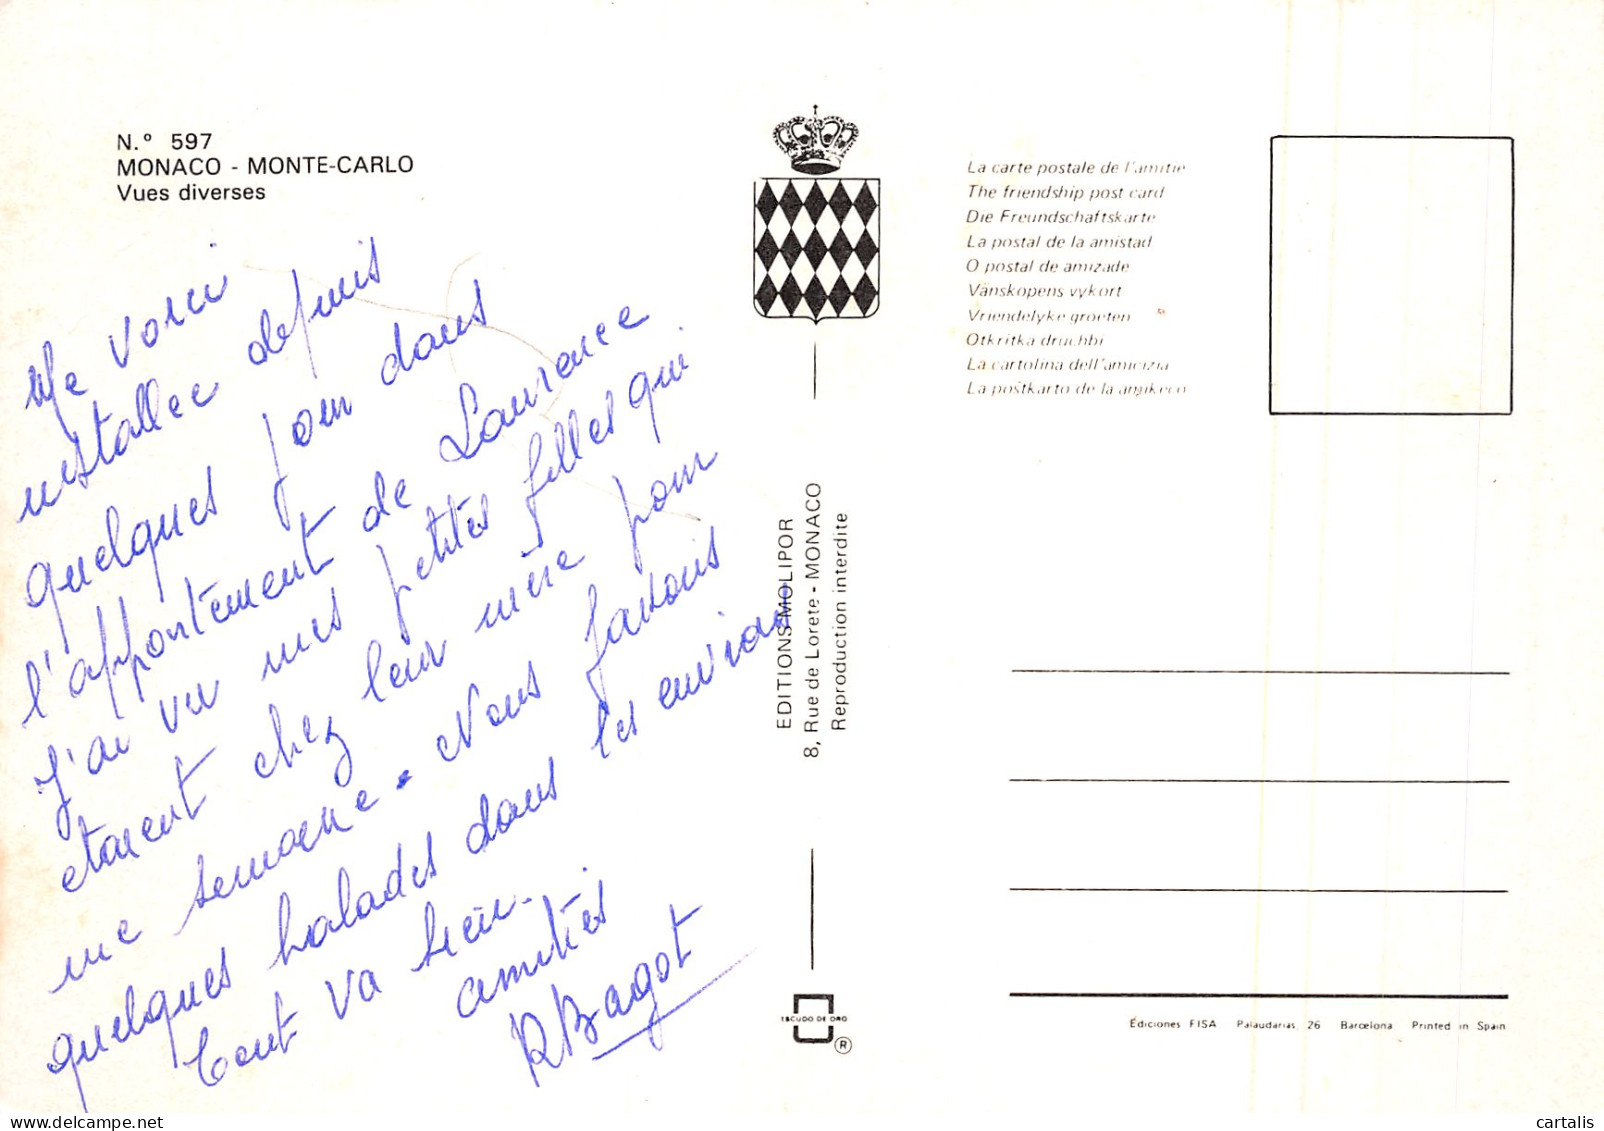 N.º 597
MONACO - MONTE-CARLO
Vues diverses
Me voici
installée depuis
quelques jour dans
l'appartement de Laurence
J'ai vu mes petites filles qui
étaient chez leur mère pour
une semaine. Nous faisons
quelques balades dans les environs
tout va bien.
amitiés
R Bagot
EDITIONS MOLIPOR
8, Rue de Lorete - MONACO
Reproduction interdite
ESCUDO DE ORO
®
La carte postale de l'amitie
The friendship post card
Die Freundschaftskarte
La postal de la amistad
O postal de amizade
Vänskopens vykort
Vriendelyke groeten
Otkritka druchbi
La cartolina dell'amicizia
La poŝtkarto de la amikeco
Édiciones FISA Palaudarias, 26 Barcelona Printed in Spain
cartalis